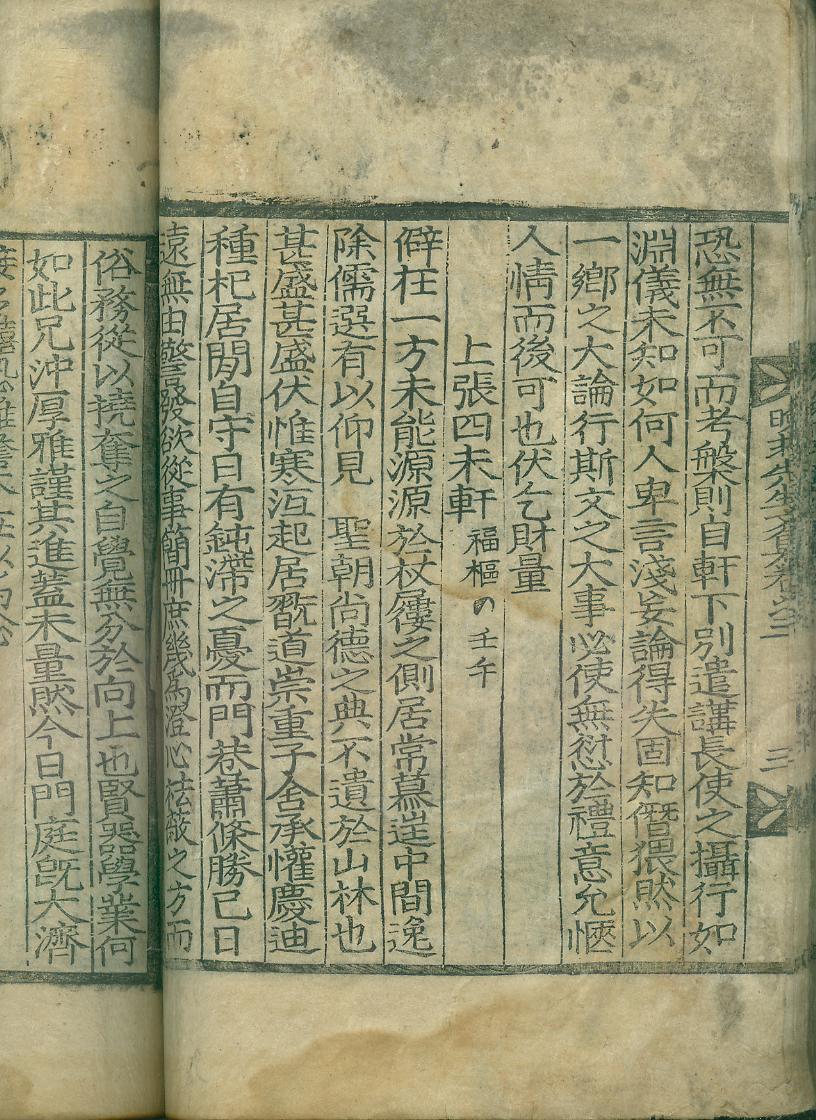 恐無不可而考槃則自軒下別遣講長使之攝行如
淵儀未知如何人卑言淺妄論得失固知僭猥然以
一鄕之大論行斯文之大事必使無愆於禮意允愜
人情而後可也伏乞財量
上張四未軒 福樞の 壬午
僻在一方未能源源於杖屨之側居常慕㞷中間逸
除儒選有以仰見 聖朝尙德之典不遺於山林也
甚盛甚盛伏惟寒沍起居翫道崇重子舍承懽慶迪
種杞居閒自守白有鈍滯之憂而門巷蕭條勝己日
遠無由警發欲從事簡冊庶幾爲澄心祛蔽之方而
俗務從以撓奪之自覺無分於向上也賢器學業何
如此兄沖厚雅謹其進蓋未量然今日門庭旣大濟
先生文集卷之二
三